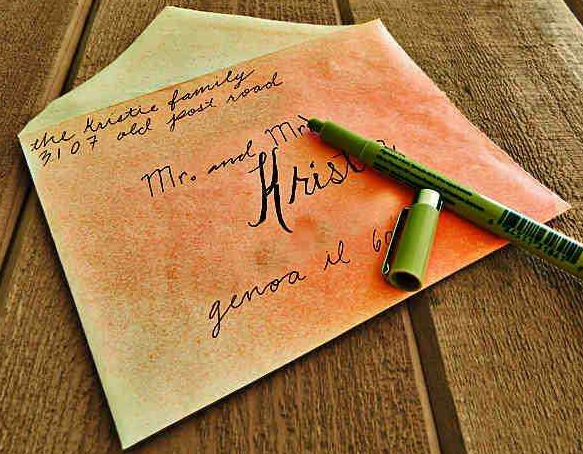 the Kristie family
3107 old post road
Mr. and Mr
Krist
genoa il 60